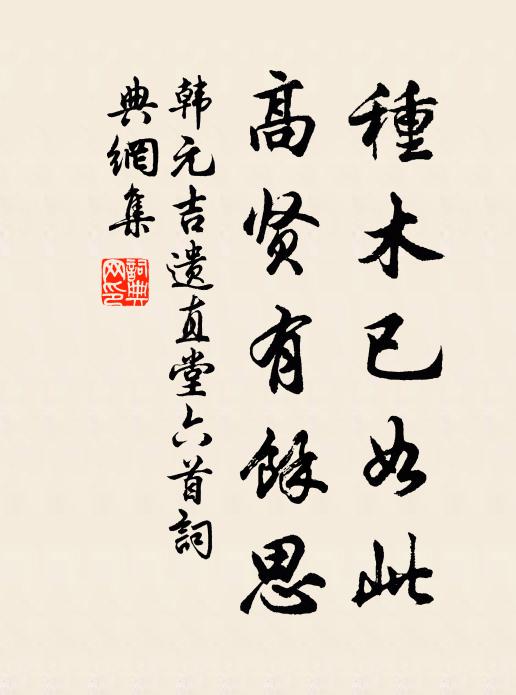 種木已如此
高贤有餘思
韩元吉遗直堂六首詞
典網集
詞典
网印